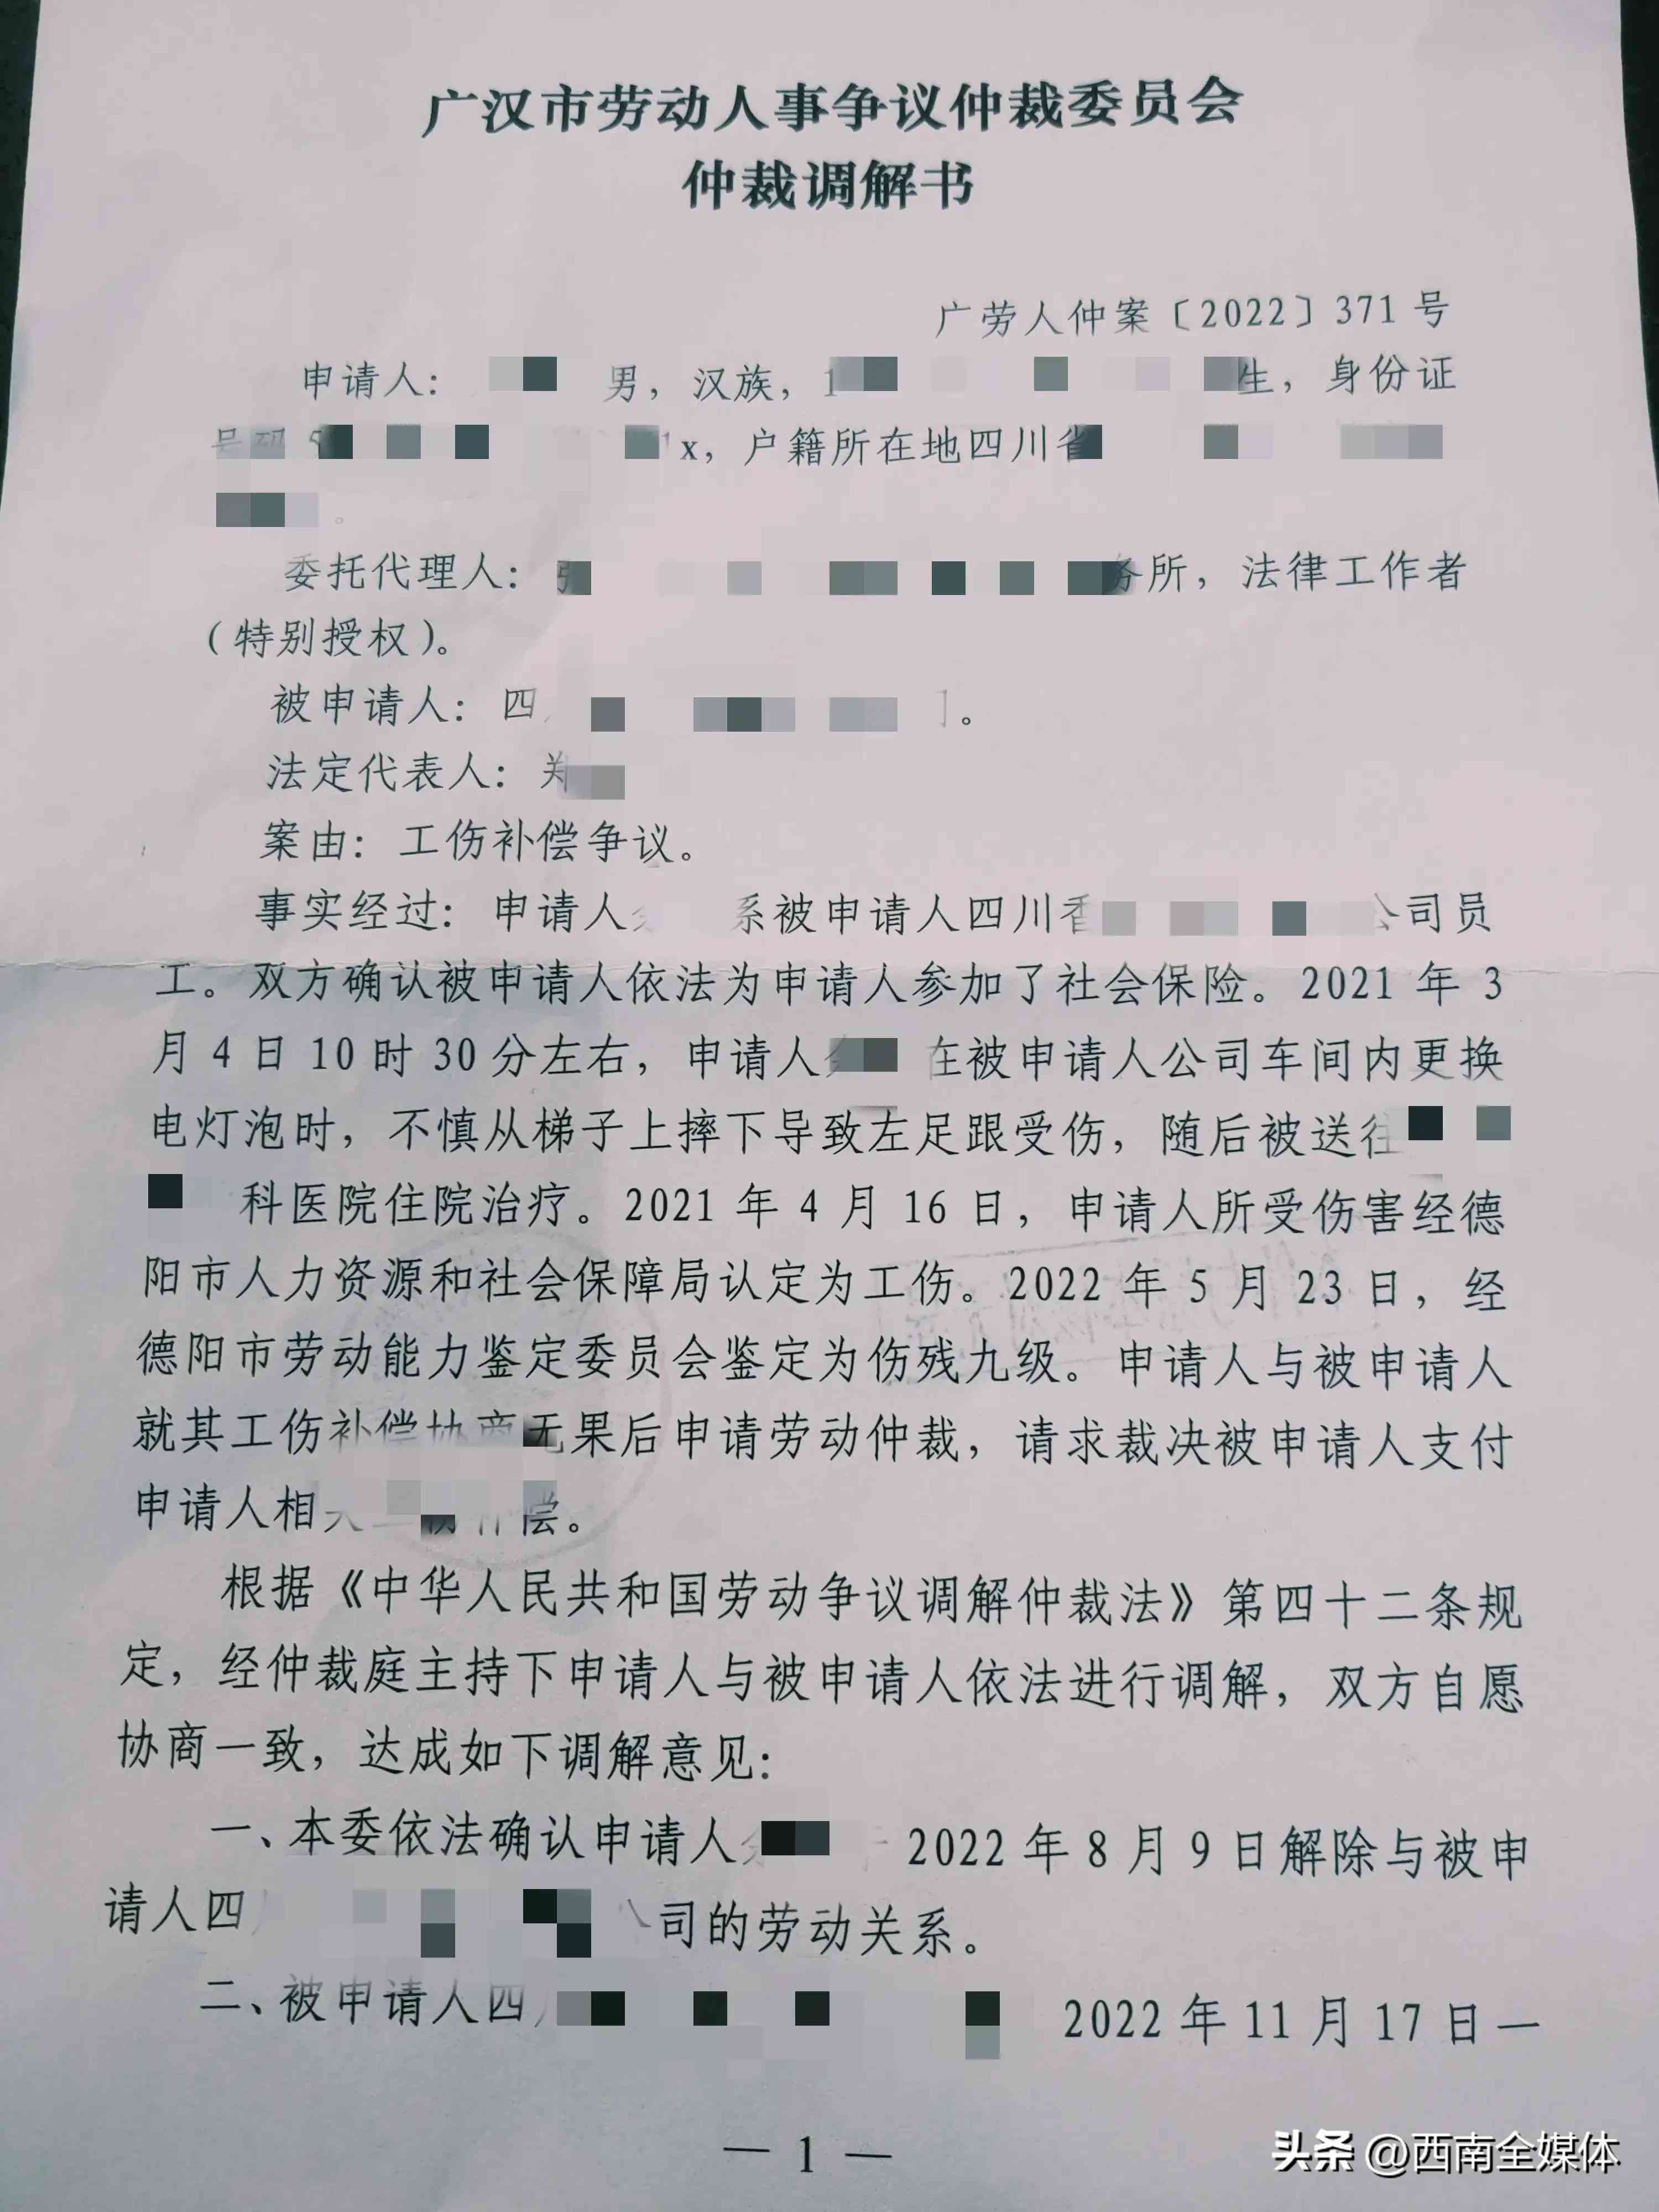 广汉市劳动人事争议仲裁委员会
仲裁调解书
广劳人仲案〔2022〕371号
申请人： 男，汉族，1 生，身份证
号码5 x，户籍所在地四川省
。
委托代理人：张 务所，法律工作者
（特别授权）。
被申请人：四 。
法定代表人：郑
案由：工伤补偿争议。
事实经过：申请人 系被申请人四川香 公司员
工。双方确认被申请人依法为申请人参加了社会保险。2021年3
月4日10时30分左右，申请人 在被申请人公司车间内更换
电灯泡时，不慎从梯子上摔下导致左足跟受伤，随后被送往
科医院住院治疗。2021年4月16日，申请人所受伤害经德
阳市人力资源和社会保障局认定为工伤。2022年5月23日，经
德阳市劳动能力鉴定委员会鉴定为伤残九级。申请人与被申请人
就其工伤补偿协商无果后申请劳动仲裁，请求裁决被申请人支付
申请人相 偿。
根据《中华人民共和国劳动争议调解仲裁法》第四十二条规
定，经仲裁庭主持下申请人与被申请人依法进行调解，双方自愿
协商一致，达成如下调解意见：
一、本委依法确认申请人 2022年8月9日解除与被申
请人四 公司的劳动关系。
二、被申请人四 2022年11月17日一
— 1 —
头条 @西南全媒体